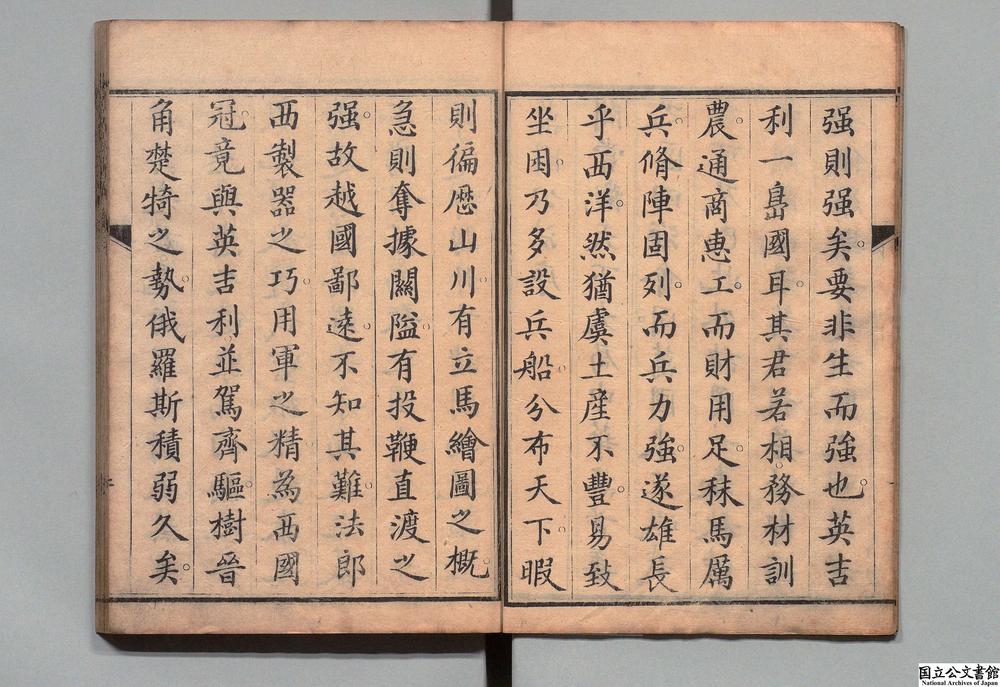 强則强矣。要非生而強也。英吉
利一㠀國耳。其君若相。務材訓
農。通商惠工。而財用足。秣馬厲
兵。脩陣固列。而兵力強。遂雄長
乎西洋。然猶虞土產不豐。易致
坐困。乃多設兵船。分布天下。暇
則徧歷山川。有立馬繪圖之概。
急則奪據關隘。有投鞭直渡之
强。故越國鄙遠。不知其難。法郎
西製器之巧。用軍之精。為西國
冠。竟與英吉利並駕齊驅。樹晉
角楚犄之勢。俄羅斯積弱久矣。
国立公文書館
National Archives of Japan